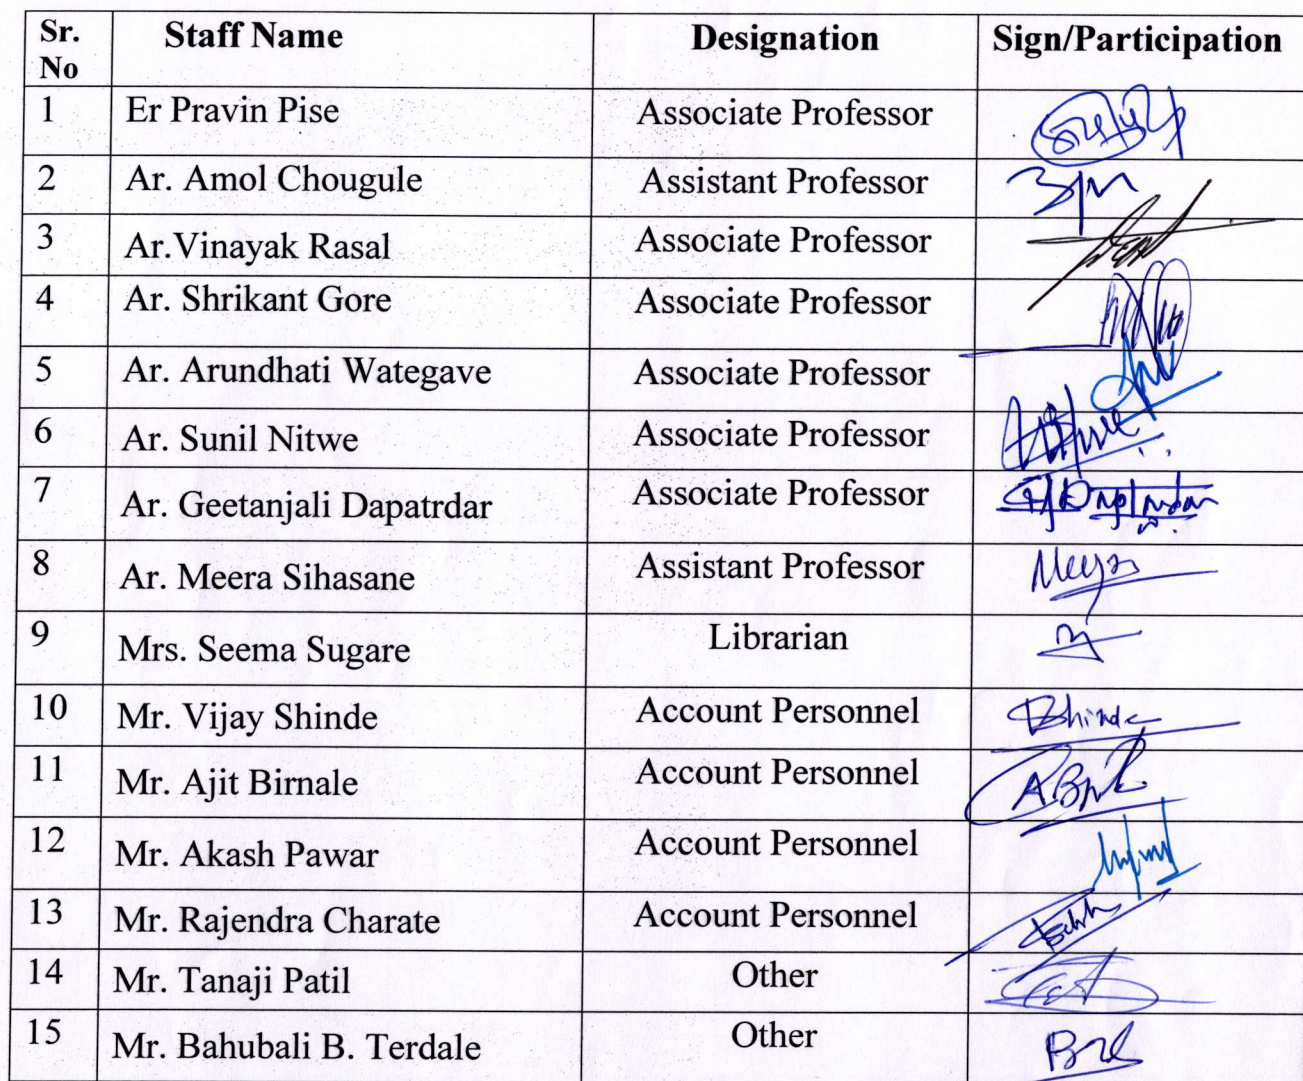 Sr. No Staff Name Designation Sign/Participation
1 Er Pravin Pise Associate Professor
2 Ar. Amol Chougule Assistant Professor
3 Ar.Vinayak Rasal Associate Professor
4 Ar. Shrikant Gore Associate Professor
5 Ar. Arundhati Wategave Associate Professor
6 Ar. Sunil Nitwe Associate Professor
7 Ar. Geetanjali Dapatrdar Associate Professor
8 Ar. Meera Sihasane Assistant Professor Meera
9 Mrs. Seema Sugare Librarian
10 Mr. Vijay Shinde Account Personnel
11 Mr. Ajit Birnale Account Personnel
12 Mr. Akash Pawar Account Personnel
13 Mr. Rajendra Charate Account Personnel
14 Mr. Tanaji Patil Other
15 Mr. Bahubali B. Terdale Other